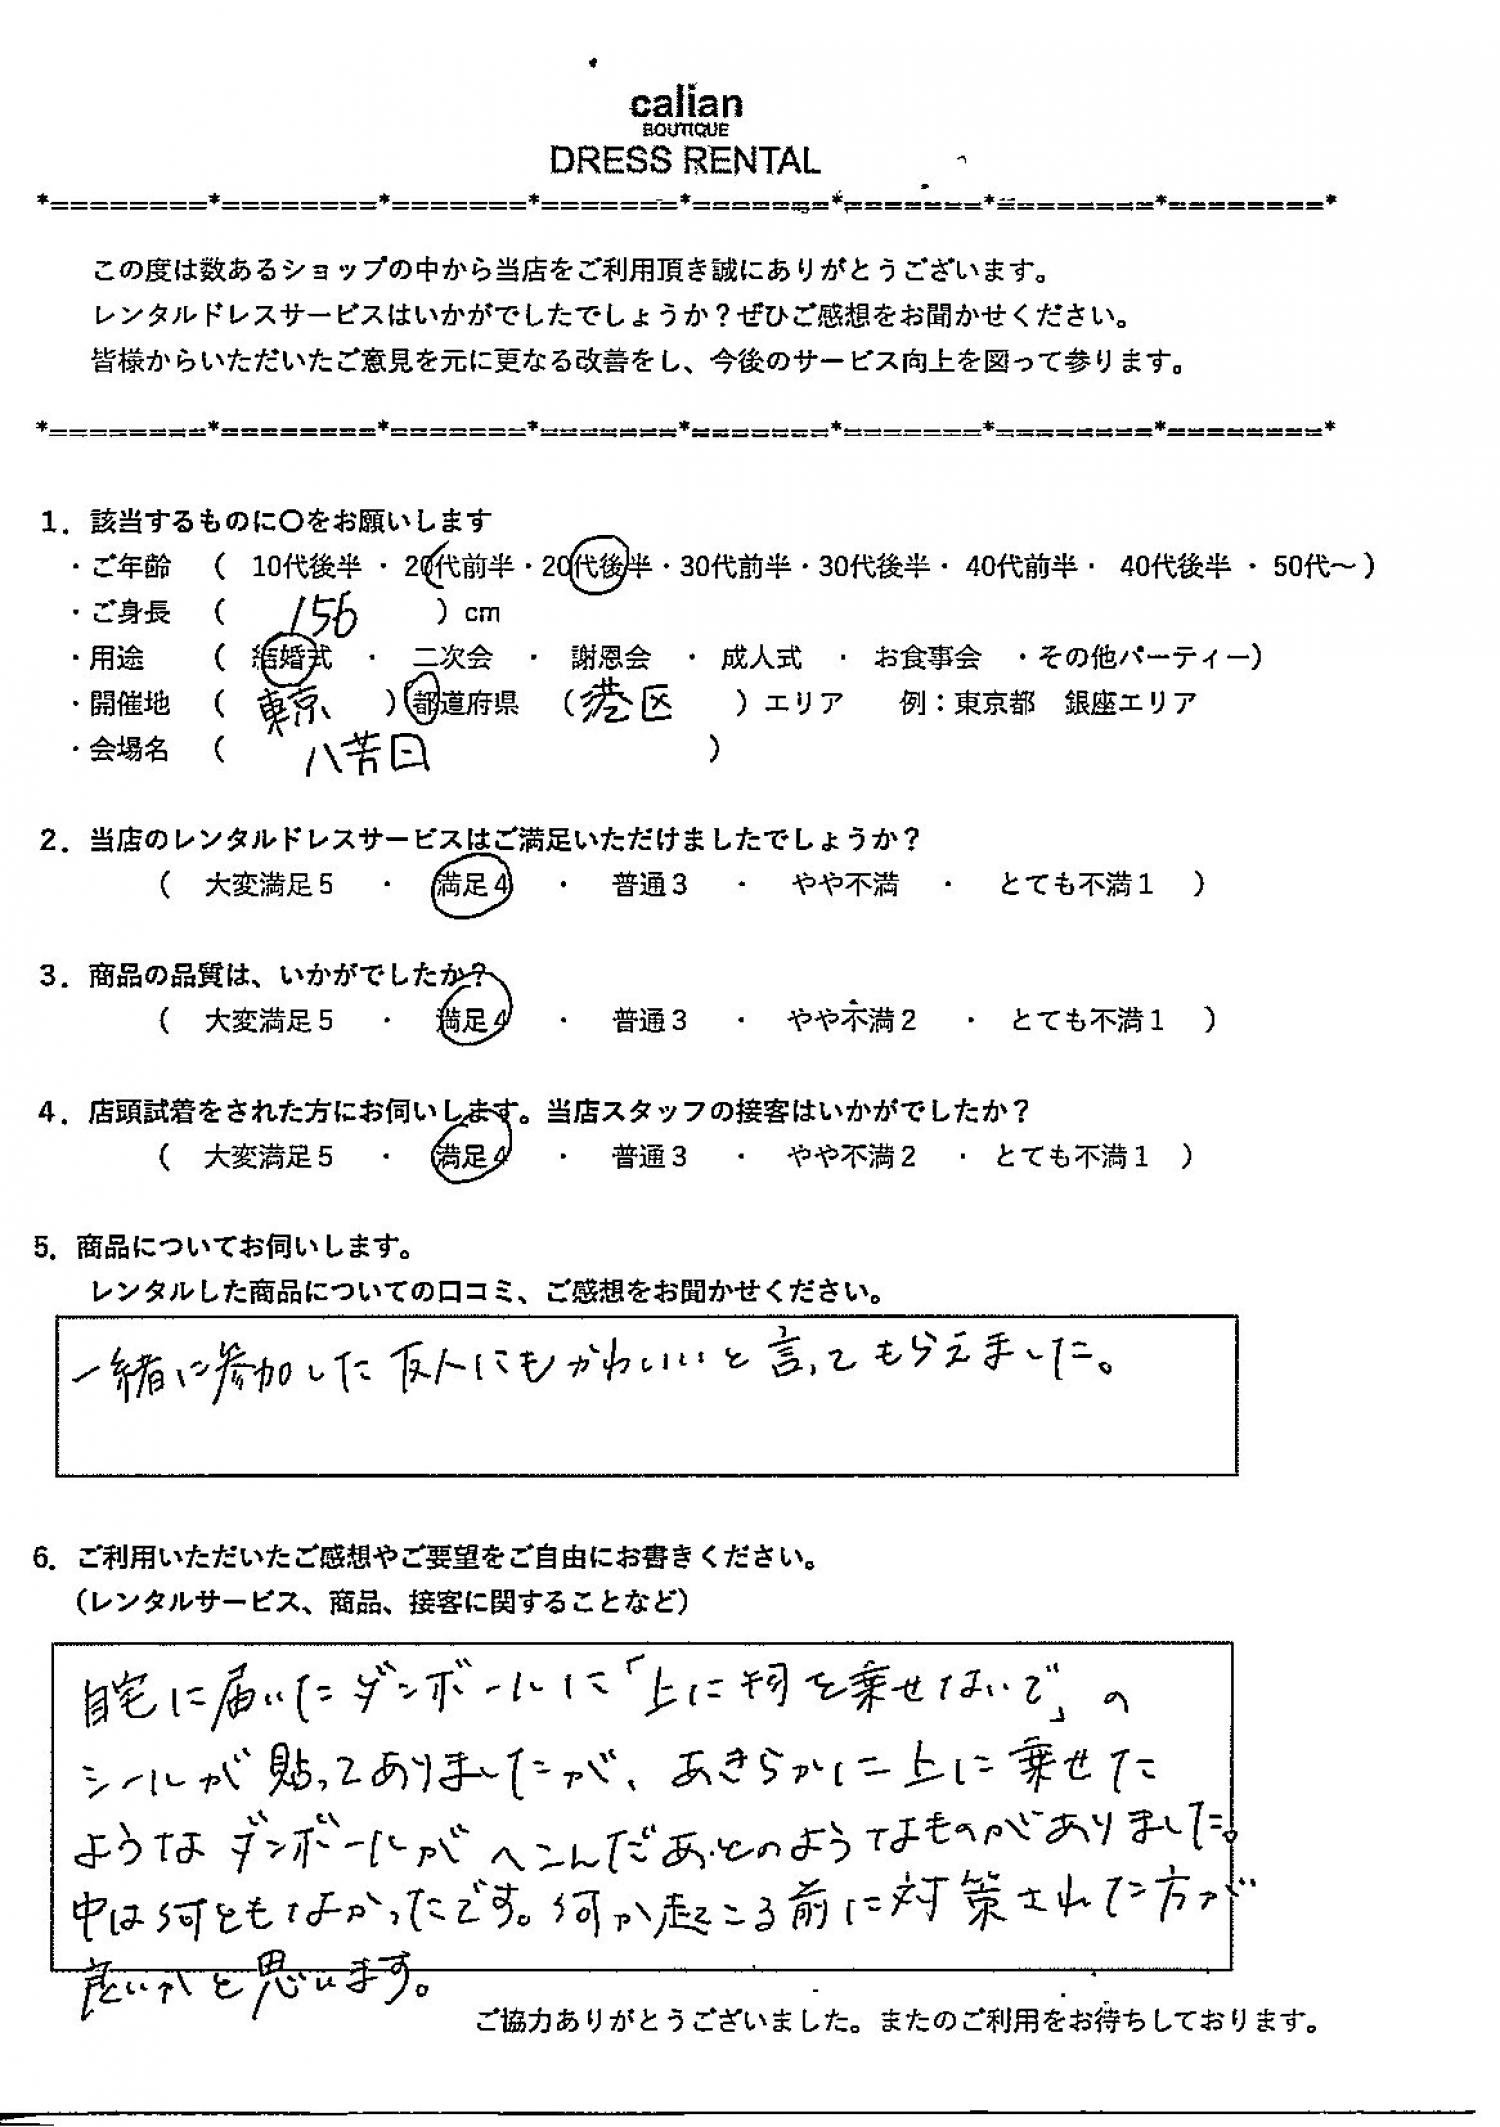 calian
BOUTIQUE
DRESS RENTAL
*========*========*=======*=======*=======*=======*========*========*
この度は数あるショップの中から当店をご利用頂き誠にありがとうございます。
レンタルドレスサービスはいかがでしたでしょうか？ぜひご感想をお聞かせください。
皆様からいただいたご意見を元に更なる改善をし、今後のサービス向上を図って参ります。
*========*========*=======*=======*=======*=======*========*========*
1．該当するものに〇をお願いします
・ご年齢 （ 10代後半 ・ 20代前半・20代後半・30代前半・30代後半・ 40代前半・ 40代後半 ・ 50代～）
・ご身長 （ 156 ）cm
・用途 （ 結婚式 ・ 二次会 ・ 謝恩会 ・ 成人式 ・ お食事会 ・その他パーティー）
・開催地 （ 東京 ）都道府県 （港区 ）エリア 例：東京都 銀座エリア
・会場名 （ 八芳園 ）
2．当店のレンタルドレスサービスはご満足いただけましたでしょうか？
（ 大変満足５ ・ 満足４ ・ 普通３ ・ やや不満 ・ とても不満１ ）
3．商品の品質は、いかがでしたか？
（ 大変満足５ ・ 満足４ ・ 普通３ ・ やや不満２ ・ とても不満１ ）
4．店頭試着をされた方にお伺いします。当店スタッフの接客はいかがでしたか？
（ 大変満足５ ・ 満足４ ・ 普通３ ・ やや不満２ ・ とても不満１ ）
5．商品についてお伺いします。
レンタルした商品についての口コミ、ご感想をお聞かせください。
一緒に参加した友人にもかわいいと言ってもらえました。
6．ご利用いただいたご感想やご要望をご自由にお書きください。
（レンタルサービス、商品、接客に関することなど）
自宅に届いたダンボールに「上に物を乗せないで」の
シールが貼ってありましたが、あきらかに上に乗せた
ようなダンボールがへこんだあとのようなものがありました。
中は何ともなかったです。何か起こる前に対策された方が
良いかと思います。
ご協力ありがとうございました。またのご利用をお待ちしております。